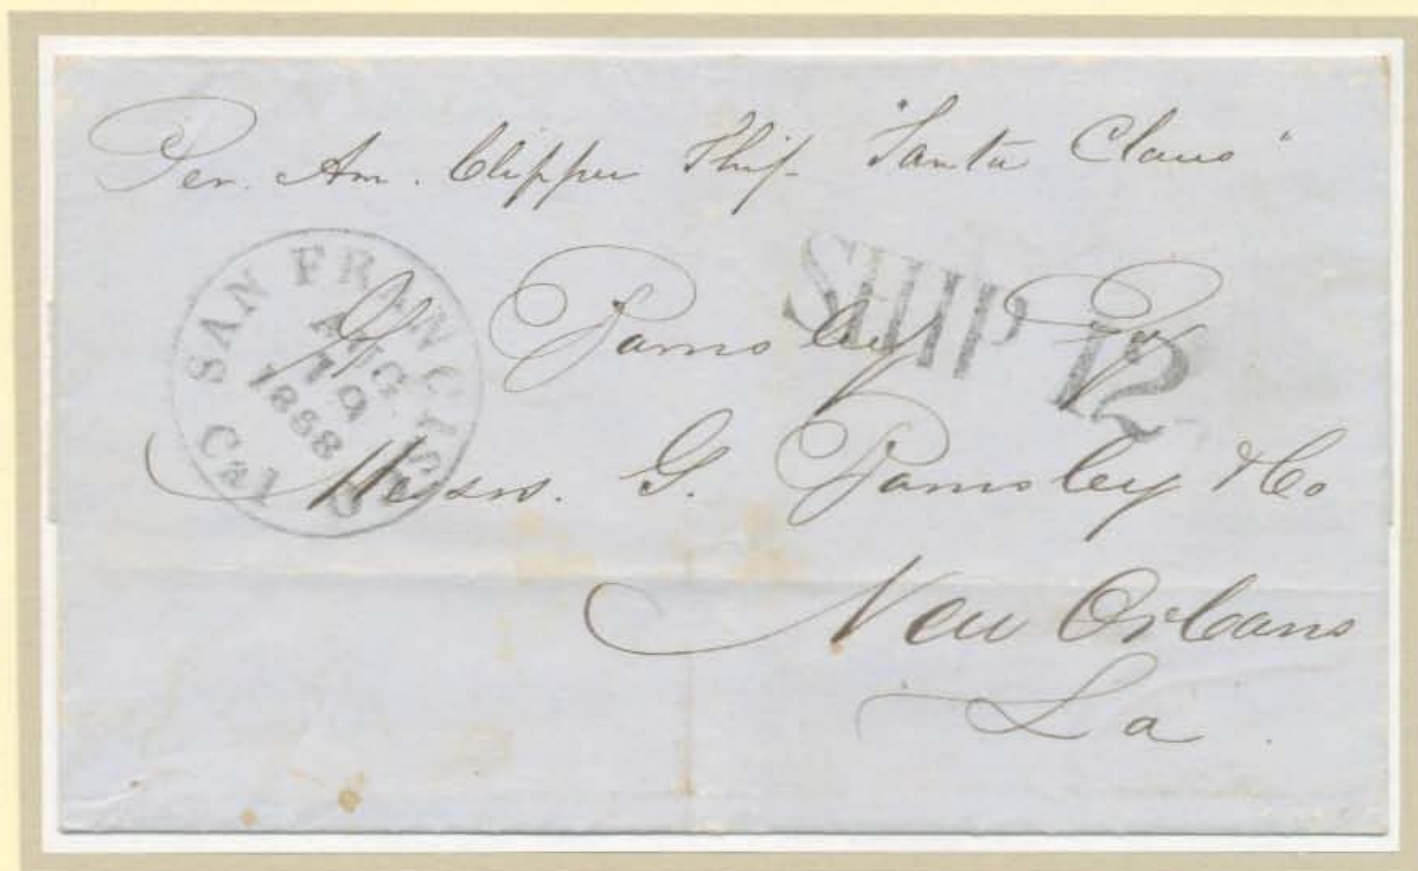 Per. Am. Clipper Ship "Santa Claus"
SAN FRANCISCO Cal
AUG 19 1858
SHIP 12
G. Parsley Esq
Messrs. G. Parsley & Co
New Orleans
La.